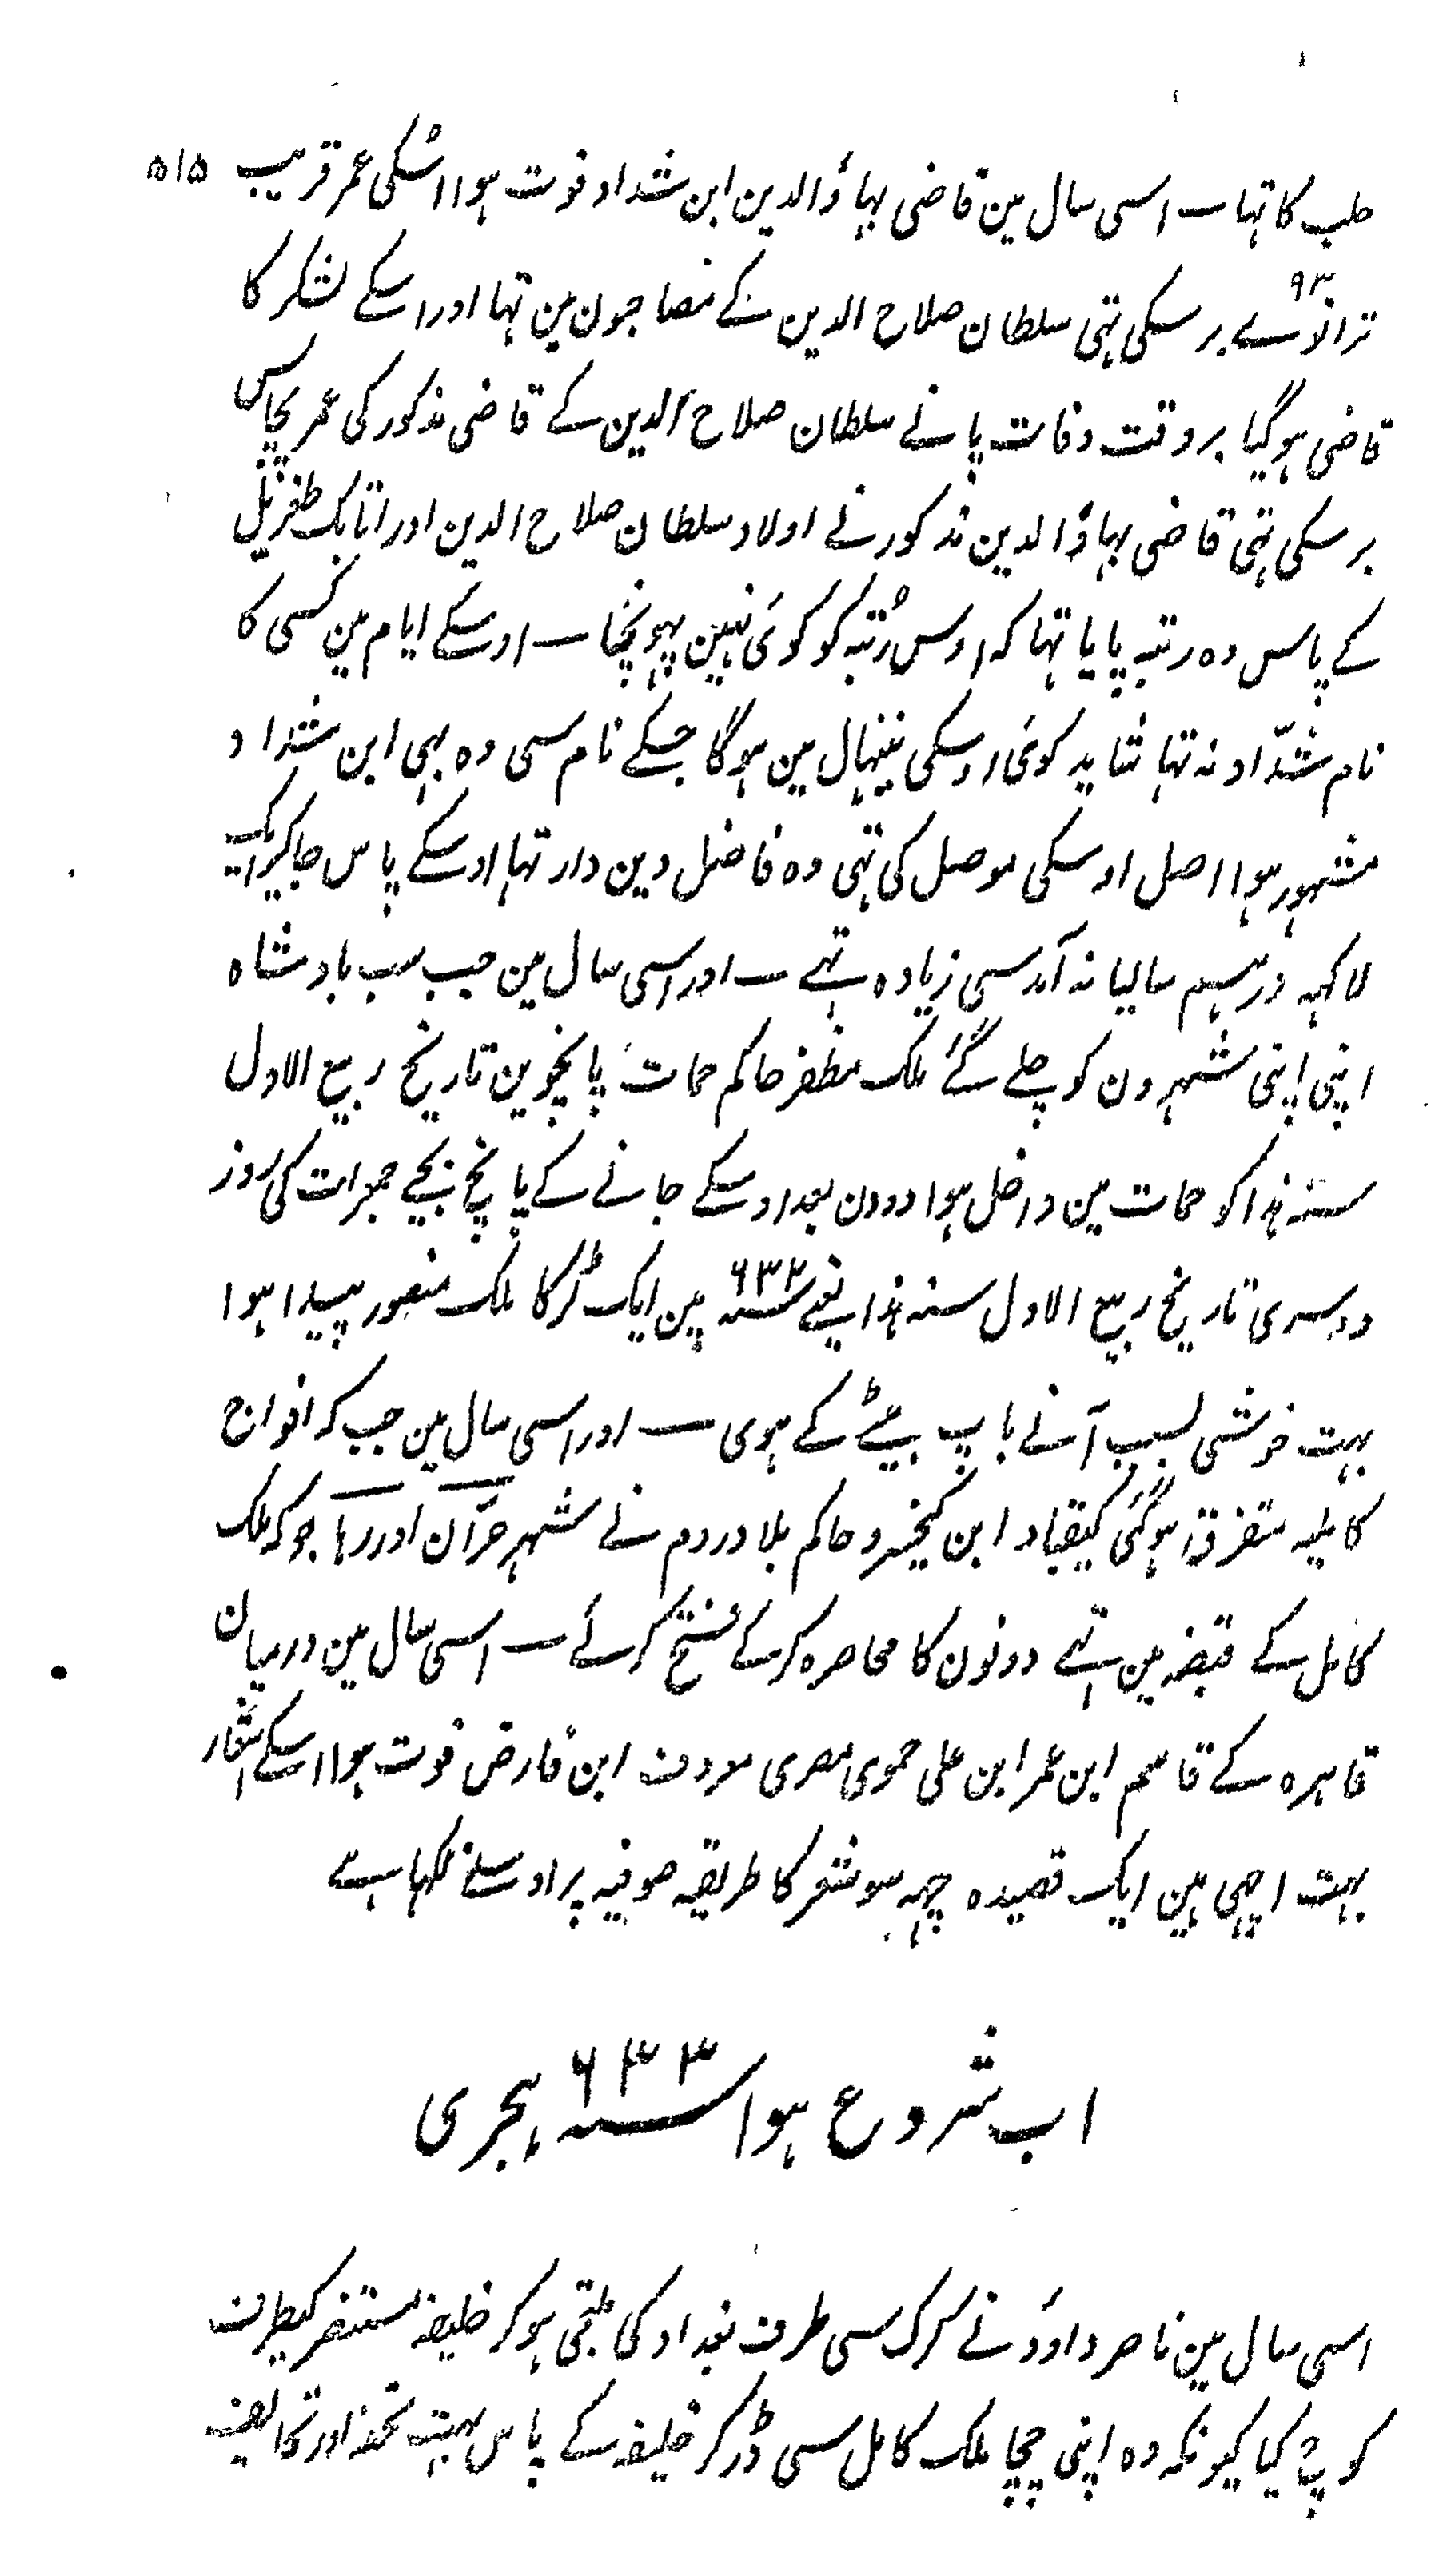 ۵۱۵
حلب کا تہا ــ اسی سال مین قاضی بہاؤالدین ابن شداد فوت ہوا اسکی عمر قریب
۹۳
ترانوے برسکی تہی سلطان صلاح الدین کے مصاحبون مین تہا اور اسکے لشکر کا
قاضی ہوگیا بروقت وفات پانے سلطان صلاح الدین کے قاضی مذکور کی عمر پچاس
برسکی تہی قاضی بہاؤالدین مذکور نے اولاد سلطان صلاح الدین اور اتابک طغریل
کے پاس وہ رتبہ پایا تہا کہ اوس رُتبہ کو کوئی نہین پہونچا ــ اوسکے ایام مین کسی کا
نام شدّاد نہ تہا شاید کوئی اوسکی ننہیال مین ہوگا جسکے نام سی وہ بہی ابن شداد
مشہور ہوا اصل اوسکی موصل کی تہی وہ فاضل دین دار تہا اوسکے پاس جاکیر ایک
لاکہہ درہم سالیانہ آمد سی زیادہ تہے ــ اور اسی سال مین جب سب بادشاہ
اپنی اپنی شہرون کو چلے گئے ملک مظفر حاکم حمات پانچوین تاریخ ربیع الاول
سنہ ہذا کو حمات مین داخل ہوا دو دن بعد اوسکے جانے کے پانچ بجے جمعرات کی روز
دوسری تاریخ ربیع الاول سنہ ہذا یعنے سنہ ۶۳۲ مین ایک لڑکا ملک منصور پیدا ہوا
بہت خوشی بسبب آنے باپ بیٹے کے ہوی ــ اور اسی سال مین جب کہ افواج
کاملیہ متفرق ہوگئی کیقباد ابن کیخسرو حاکم بلاد روم نے شہر حرّان اور رہا جو کہ ملک
کامل کے قبضہ مین تہے دونون کا محاصرہ کرکے فتح کرلئے ــ اسی سال مین درمیان
قاہرہ کے قاسم ابن عمر ابن علی حموی مصری معروف ابن فارض فوت ہوا اسکے اشعار
بہت اچہی ہین ایک قصیدہ چہہ سو شعر کا طریقہ صوفیہ پر اوسنے لکہا ہے
اب شروع ہوا سنہ ۶۳۳ ہجری
اسی سال مین ناصر داؤد نے کرک سی طرف بغداد کی ملتجی ہوکر خلیفہ مستنصر کیطرف
کوچ کیا کیونکہ وہ اپنی چچا ملک کامل سی ڈرکر خلیفہ کے پاس بہت تحفہ اور تحایف